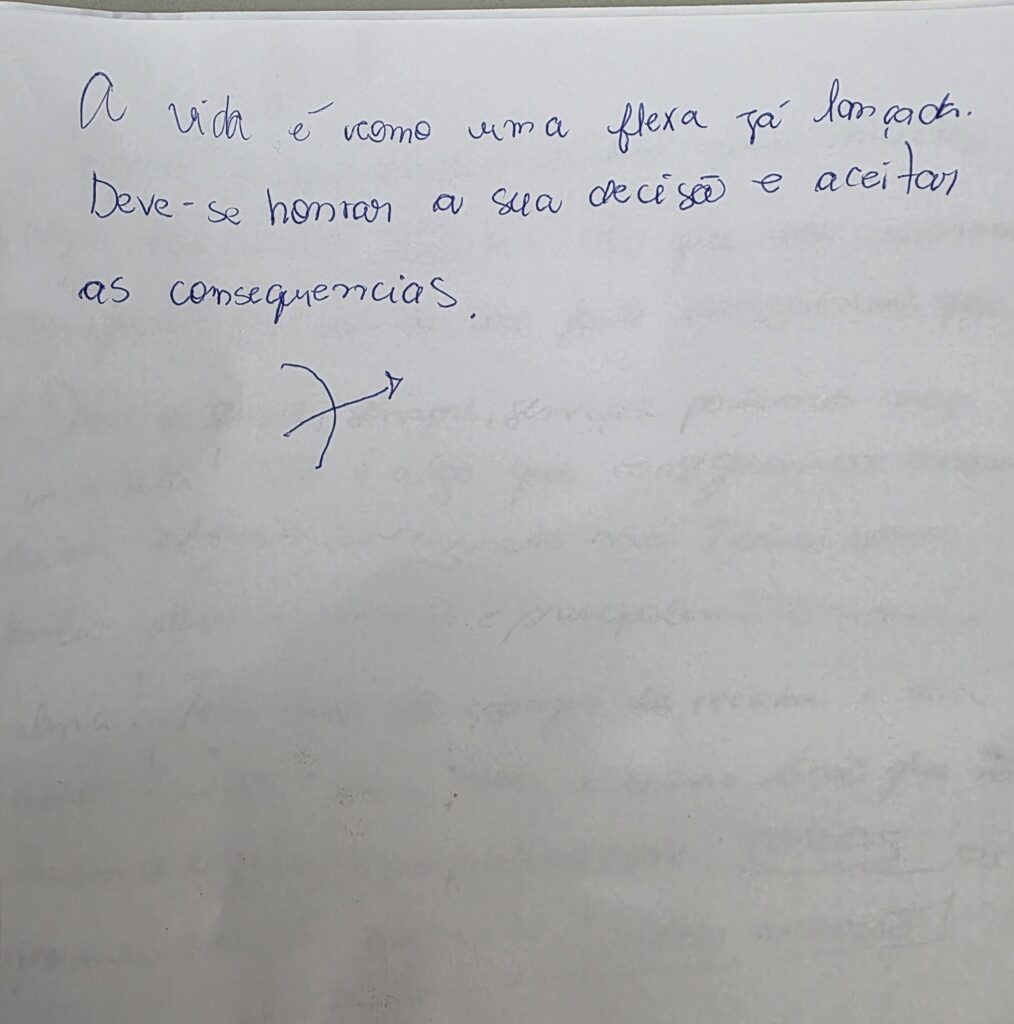 A vida é como uma flexa já lançada.
Deve-se honrar a sua decisão e aceitar
as consequencias.